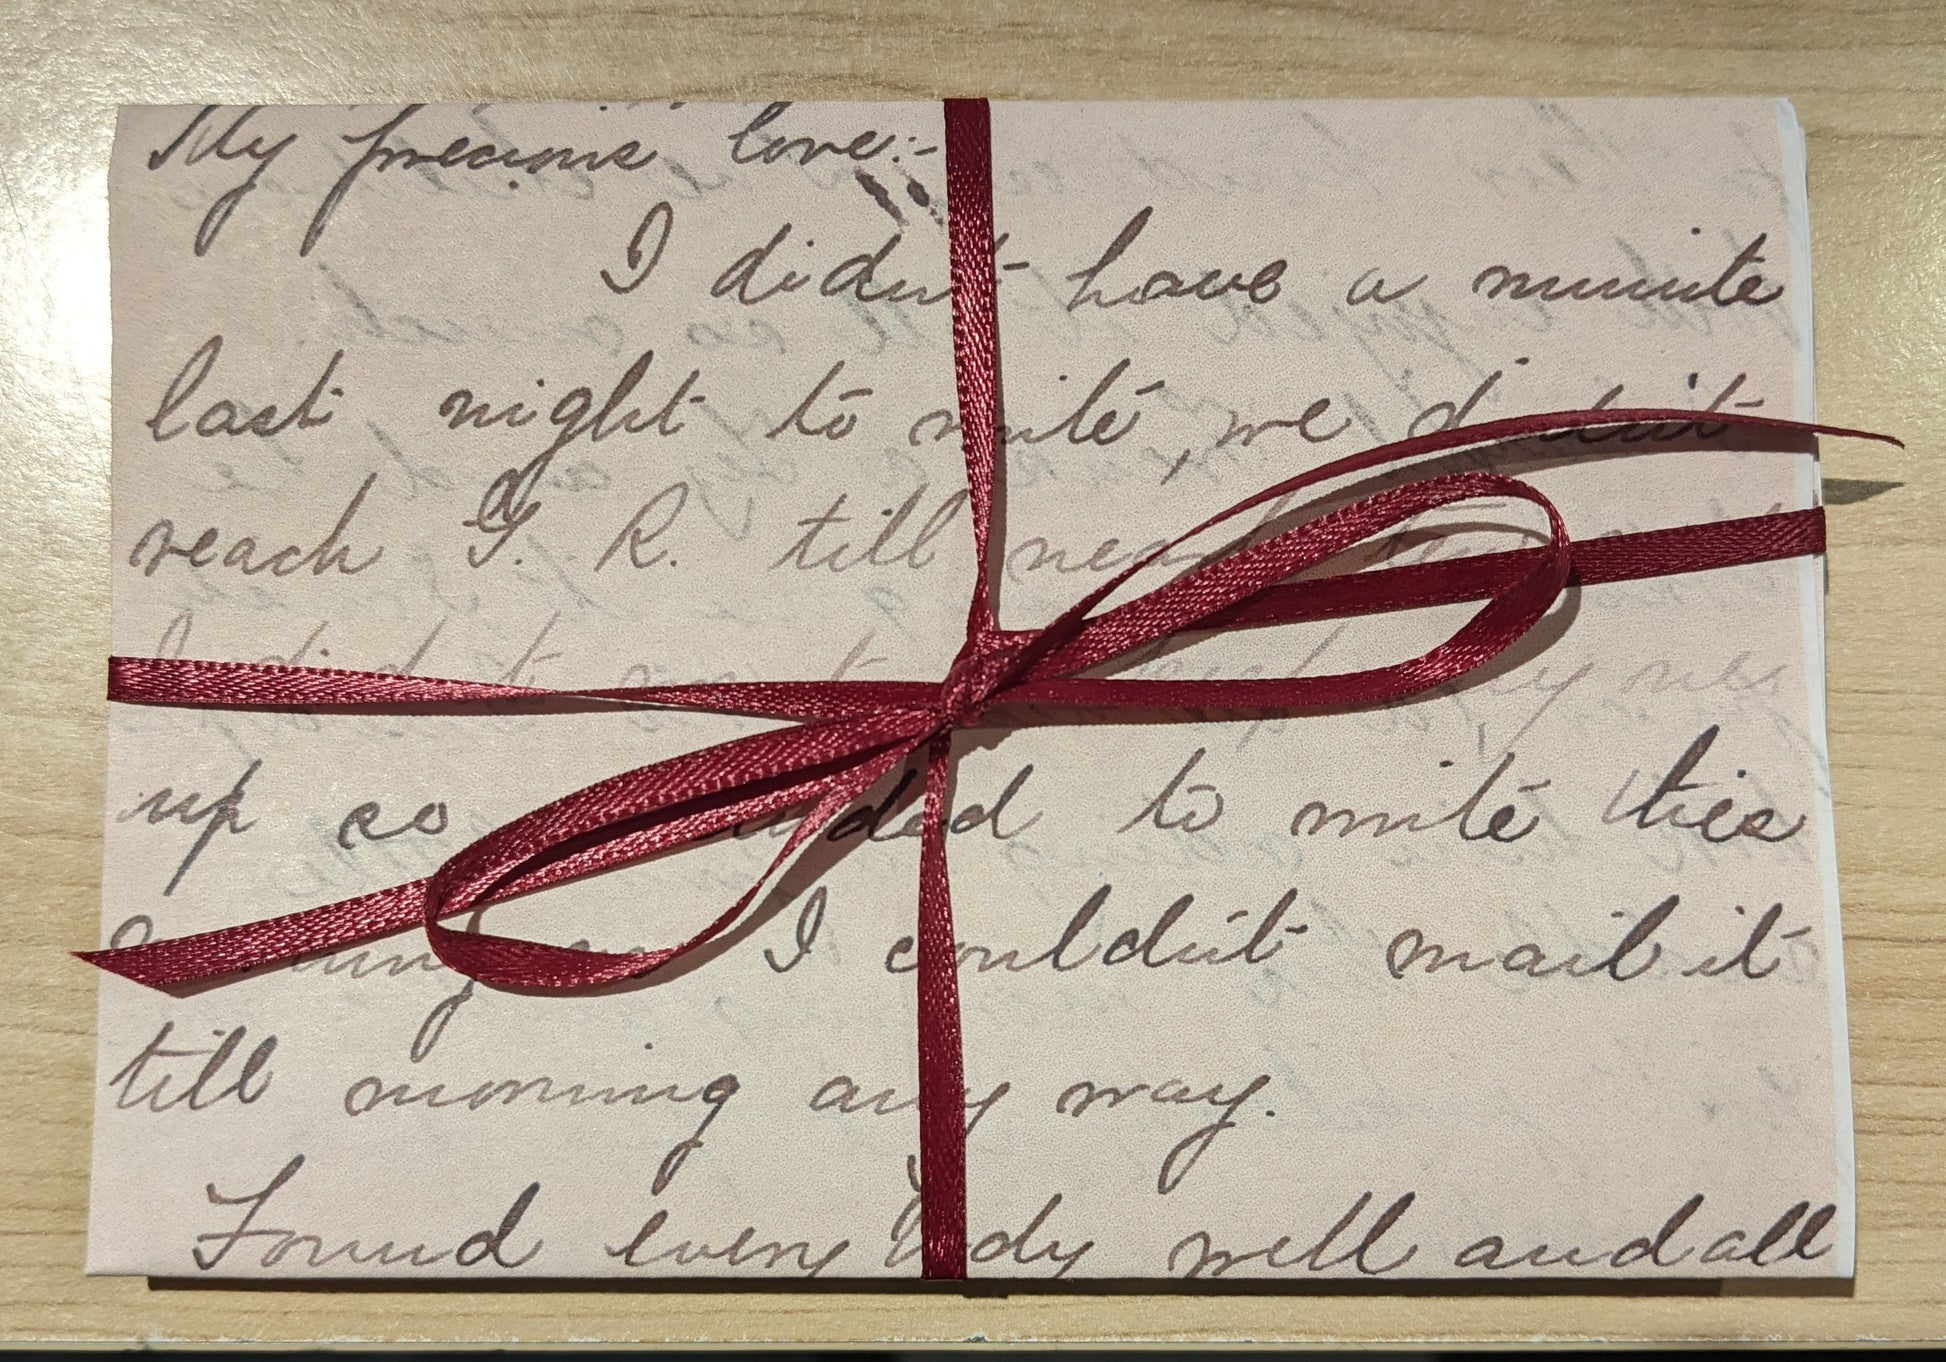 My precious love:-
I didn't have a minute
last night to write, we didn't
reach G. R. till near
I didn't
up so to write this
I couldn't mail it
till morning any way.
Found every body well and all